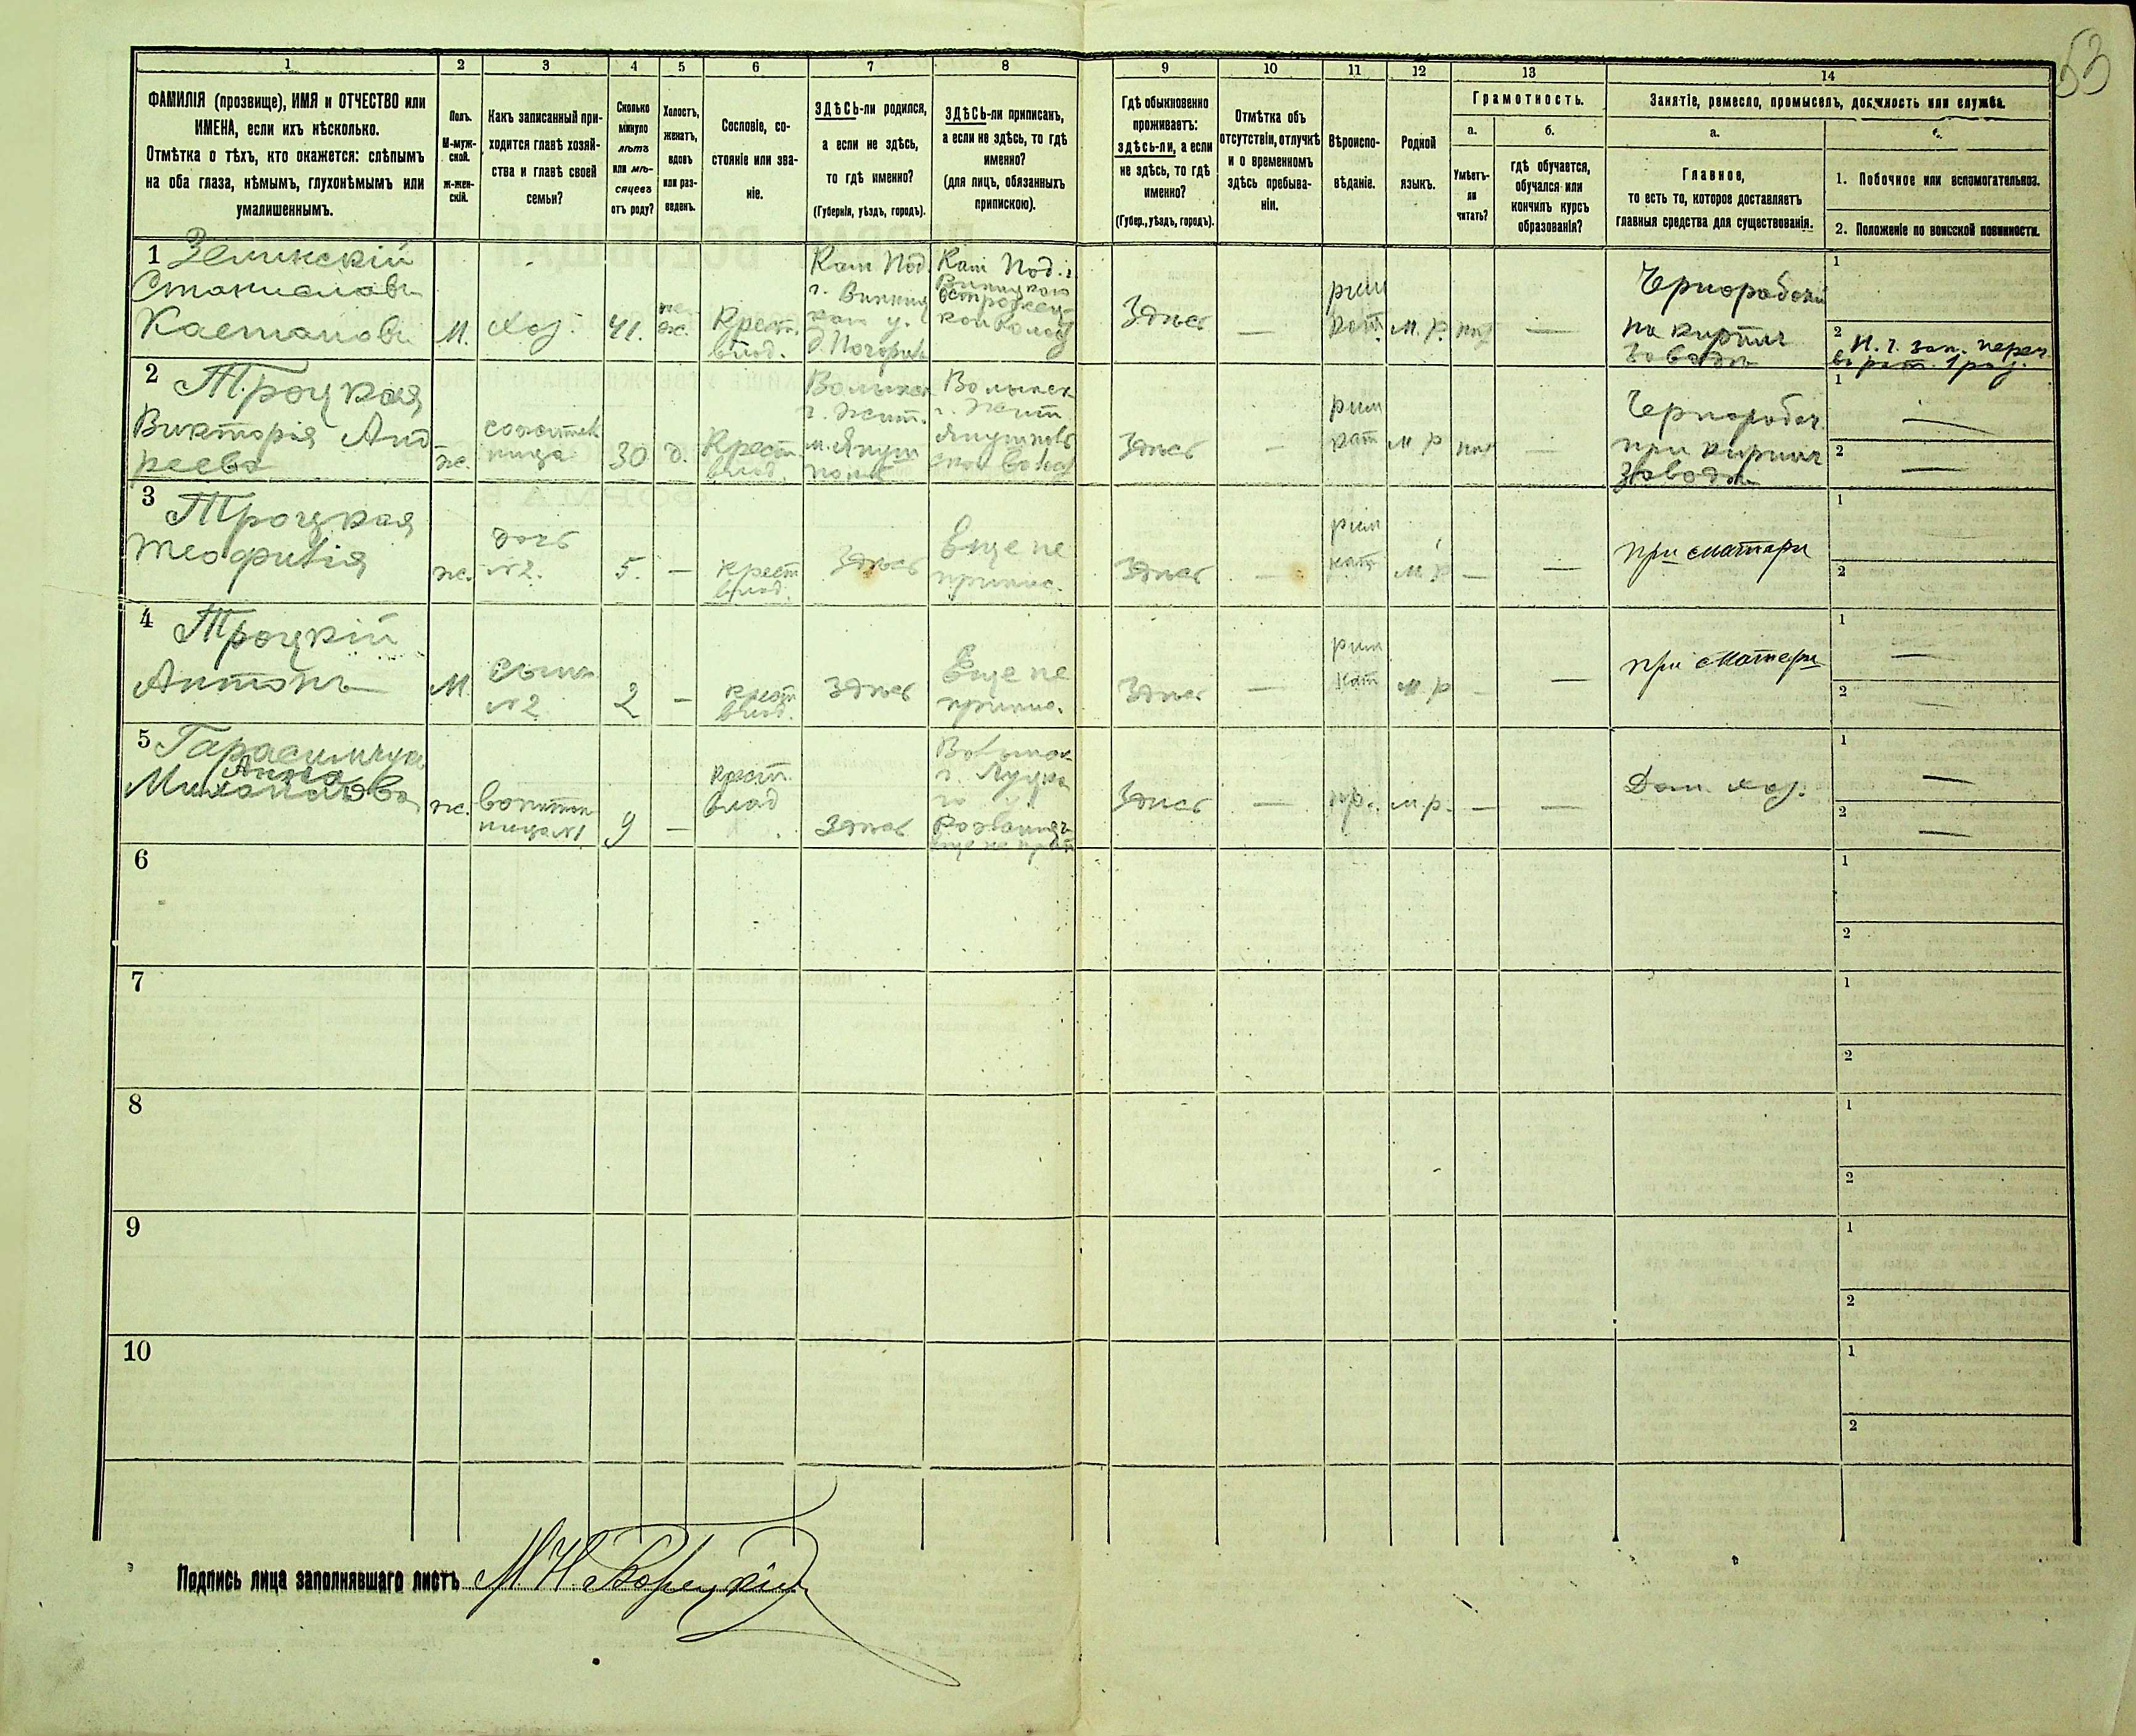 53
1 2 3 4 5 6 7 8 9 10 11 12 13 14
ФАМИЛІЯ (прозвище), ИМЯ и ОТЧЕСТВО или
ИМЕНА, если ихъ нѣсколько.
Отмѣтка о тѣхъ, кто окажется: слѣпымъ
на оба глаза, нѣмымъ, глухонѣмымъ или
умалишеннымъ.
Полъ.
М-муж-
ской.
ж-жен-
скій.
Какъ записанный при-
ходится главѣ хозяй-
ства и главѣ своей
семьи?
Сколько
минуло
лѣтъ
или мѣ-
сяцевъ
отъ роду?
Холостъ,
женатъ,
вдовъ
или раз-
веденъ.
Сословіе, со-
стояніе или зва-
ніе.
ЗДѢСЬ-ли родился,
а если не здѣсь,
то гдѣ именно?
(Губернія, уѣздъ, городъ).
ЗДѢСЬ-ли приписанъ,
а если не здѣсь, то гдѣ
именно?
(для лицъ, обязанныхъ
припискою).
Гдѣ обыкновенно
проживаетъ:
здѣсь-ли, а если
не здѣсь, то гдѣ
именно?
(Губер., уѣздъ, городъ).
Отмѣтка объ
отсутствіи, отлучкѣ
и о временномъ
здѣсь пребыва-
ніи.
Вѣроиспо-
вѣданіе.
Родной
языкъ.
Грамотность.
а.
Умѣетъ-
ли
читать?
б.
гдѣ обучается,
обучался или
кончилъ курсъ
образованія?
Занятіе, ремесло, промыселъ, должность или служба.
а.
Главное,
то есть то, которое доставляетъ
главныя средства для существованія.
1. Побочное или вспомогательное.
2. Положеніе по воинской повинности.
1 Зелинскій
Станиславъ
Каетановъ
М.
Хоз.
41.
не
ж.
Крест.
влад.
Кам Под.
г. Винниц
каго у.
Кам Под.
Винницкаго
Здѣсь
—
рим
кат.
М. р.
—
Чернорабочій
на кирпич
заводѣ
1
2
2 Троцкая
Викторія Анд-
реева
ж.
сожитель
ница
30
д.
Крест
влад.
Волынск
г. Жит.
Волынск
г. Жит
Здѣсь
—
рим
кат
м р
—
Чернорабоч.
при кирпич
заводѣ
1 —
2 —
3 Троцкая
Теофилія
ж.
дочь
№2.
5.
—
крест
влад.
Здѣсь
Еще не
припис.
Здѣсь
—
рим
кат
м. р
—
—
при матери
1
2
4 Троцкій
Антонъ
М.
сынъ
№2
2
—
крест
влад.
Здѣсь
Еще не
припис.
Здѣсь
—
рим
кат
м. р
—
—
при матери
1 —
2 —
5 Гарасимчук
Анна
ж.
воспитан
ница №1
9
—
крест.
влад
Здѣсь
Волынск
г. Луцка
Здѣсь
—
пр.
м.р.
—
—
Дом. хоз.
1 —
2 —
6
1
2
7
1
2
8
1
2
9
1
2
10
1
2
Подпись лица заполнявшаго листъ